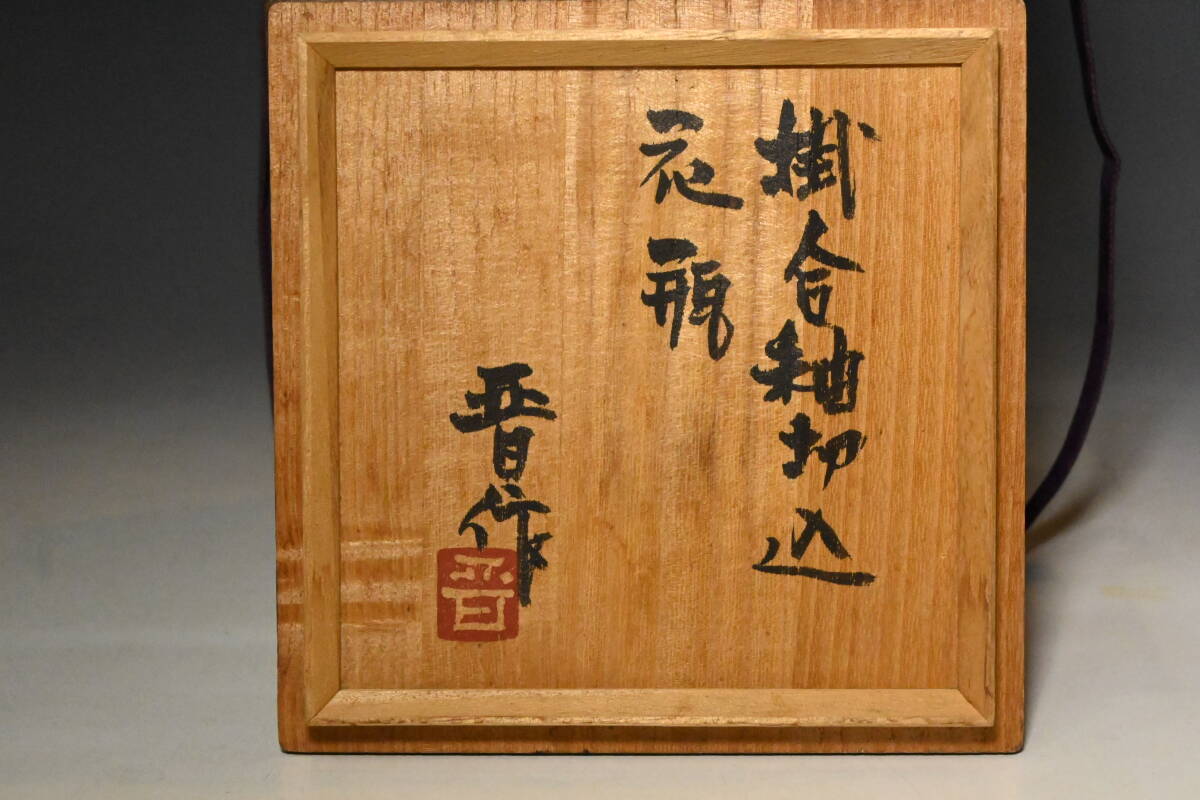 掛合釉切込
花瓶
晋作
晋